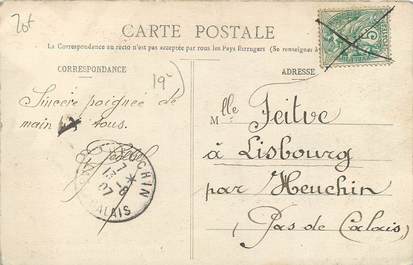 CARTE POSTALE
La Correspondance au recto n'est pas acceptée par tous les Pays Etrangers (Se renseigner à
CORRESPONDANCE
ADRESSE
19
Sincère poignée de
main à tous.
HEUCHIN
7
13-8
07
PAS-DE-CALAIS
Mlle Feitve
à Lisbourg
par Heuchin
(Pas de Calais)
5